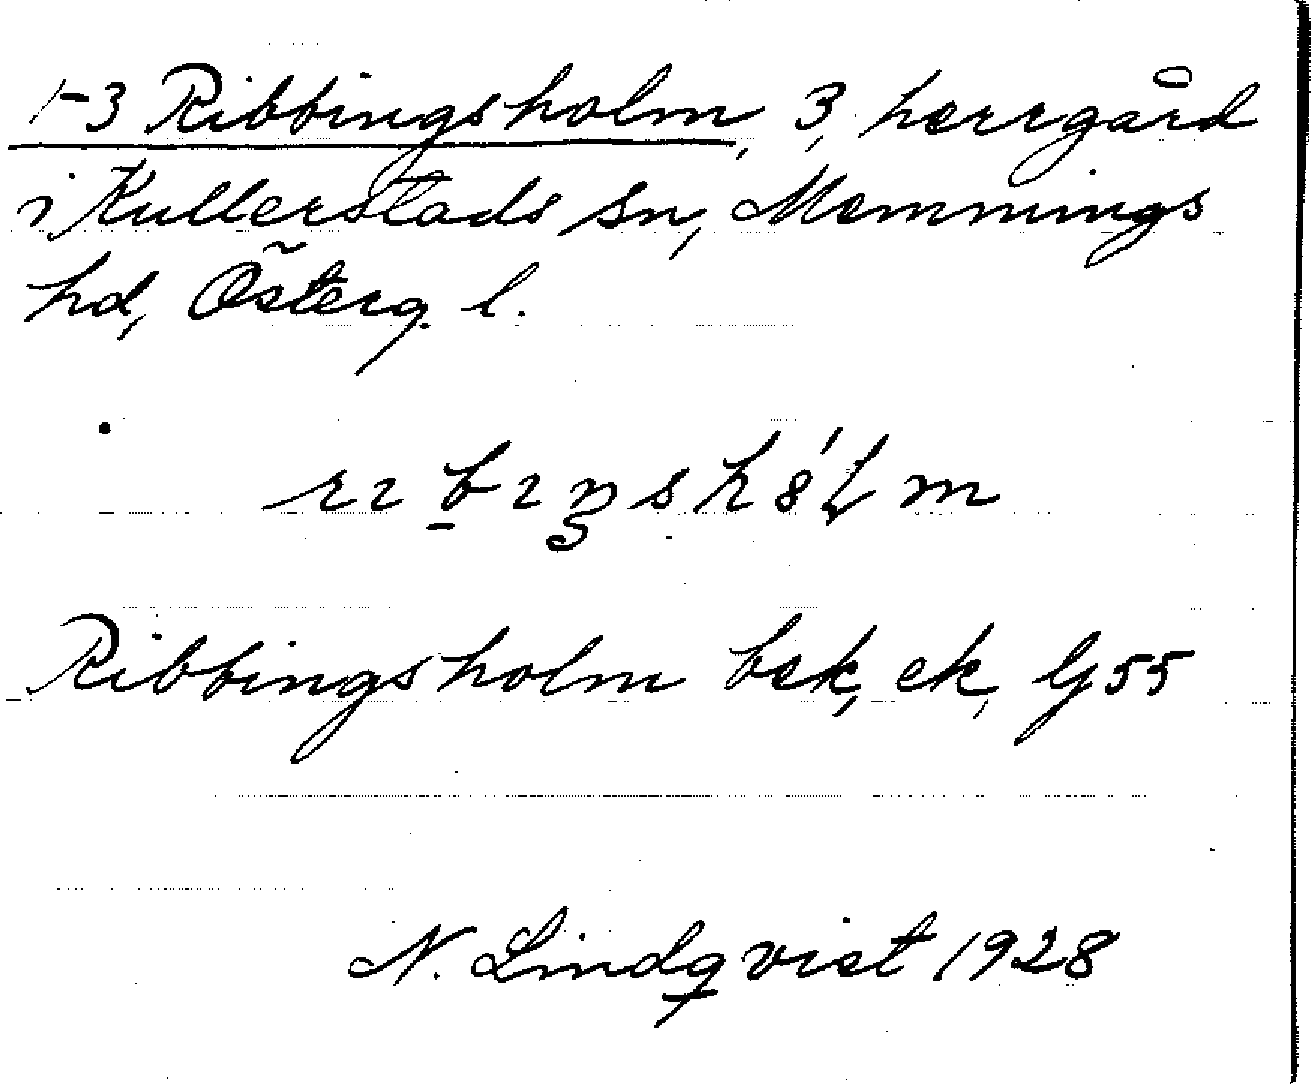 1-3 Ribbingsholm, 3, herrgård
i Kullerstads sn, Memmings
hd, Österg. l.
Ribbingsholm bek, ek, G 55
N. Lindqvist 1928